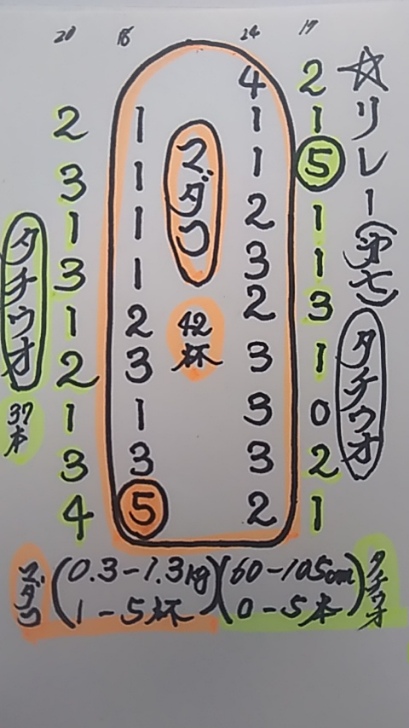 20 18 24 17
☆リレー(第七)
タチウオ
2 1 5 1 1 3 1 0 2 1
4 1 1 2 3 2 3 3 3 2
マダコ
42杯
1 1 1 1 2 3 1 3 5
2 3 1 3 1 2 1 3 4
タチウオ
37本
マダコ (0.3-1.3kg
1-5杯)
(60-105cm
0-5本) タチウオ